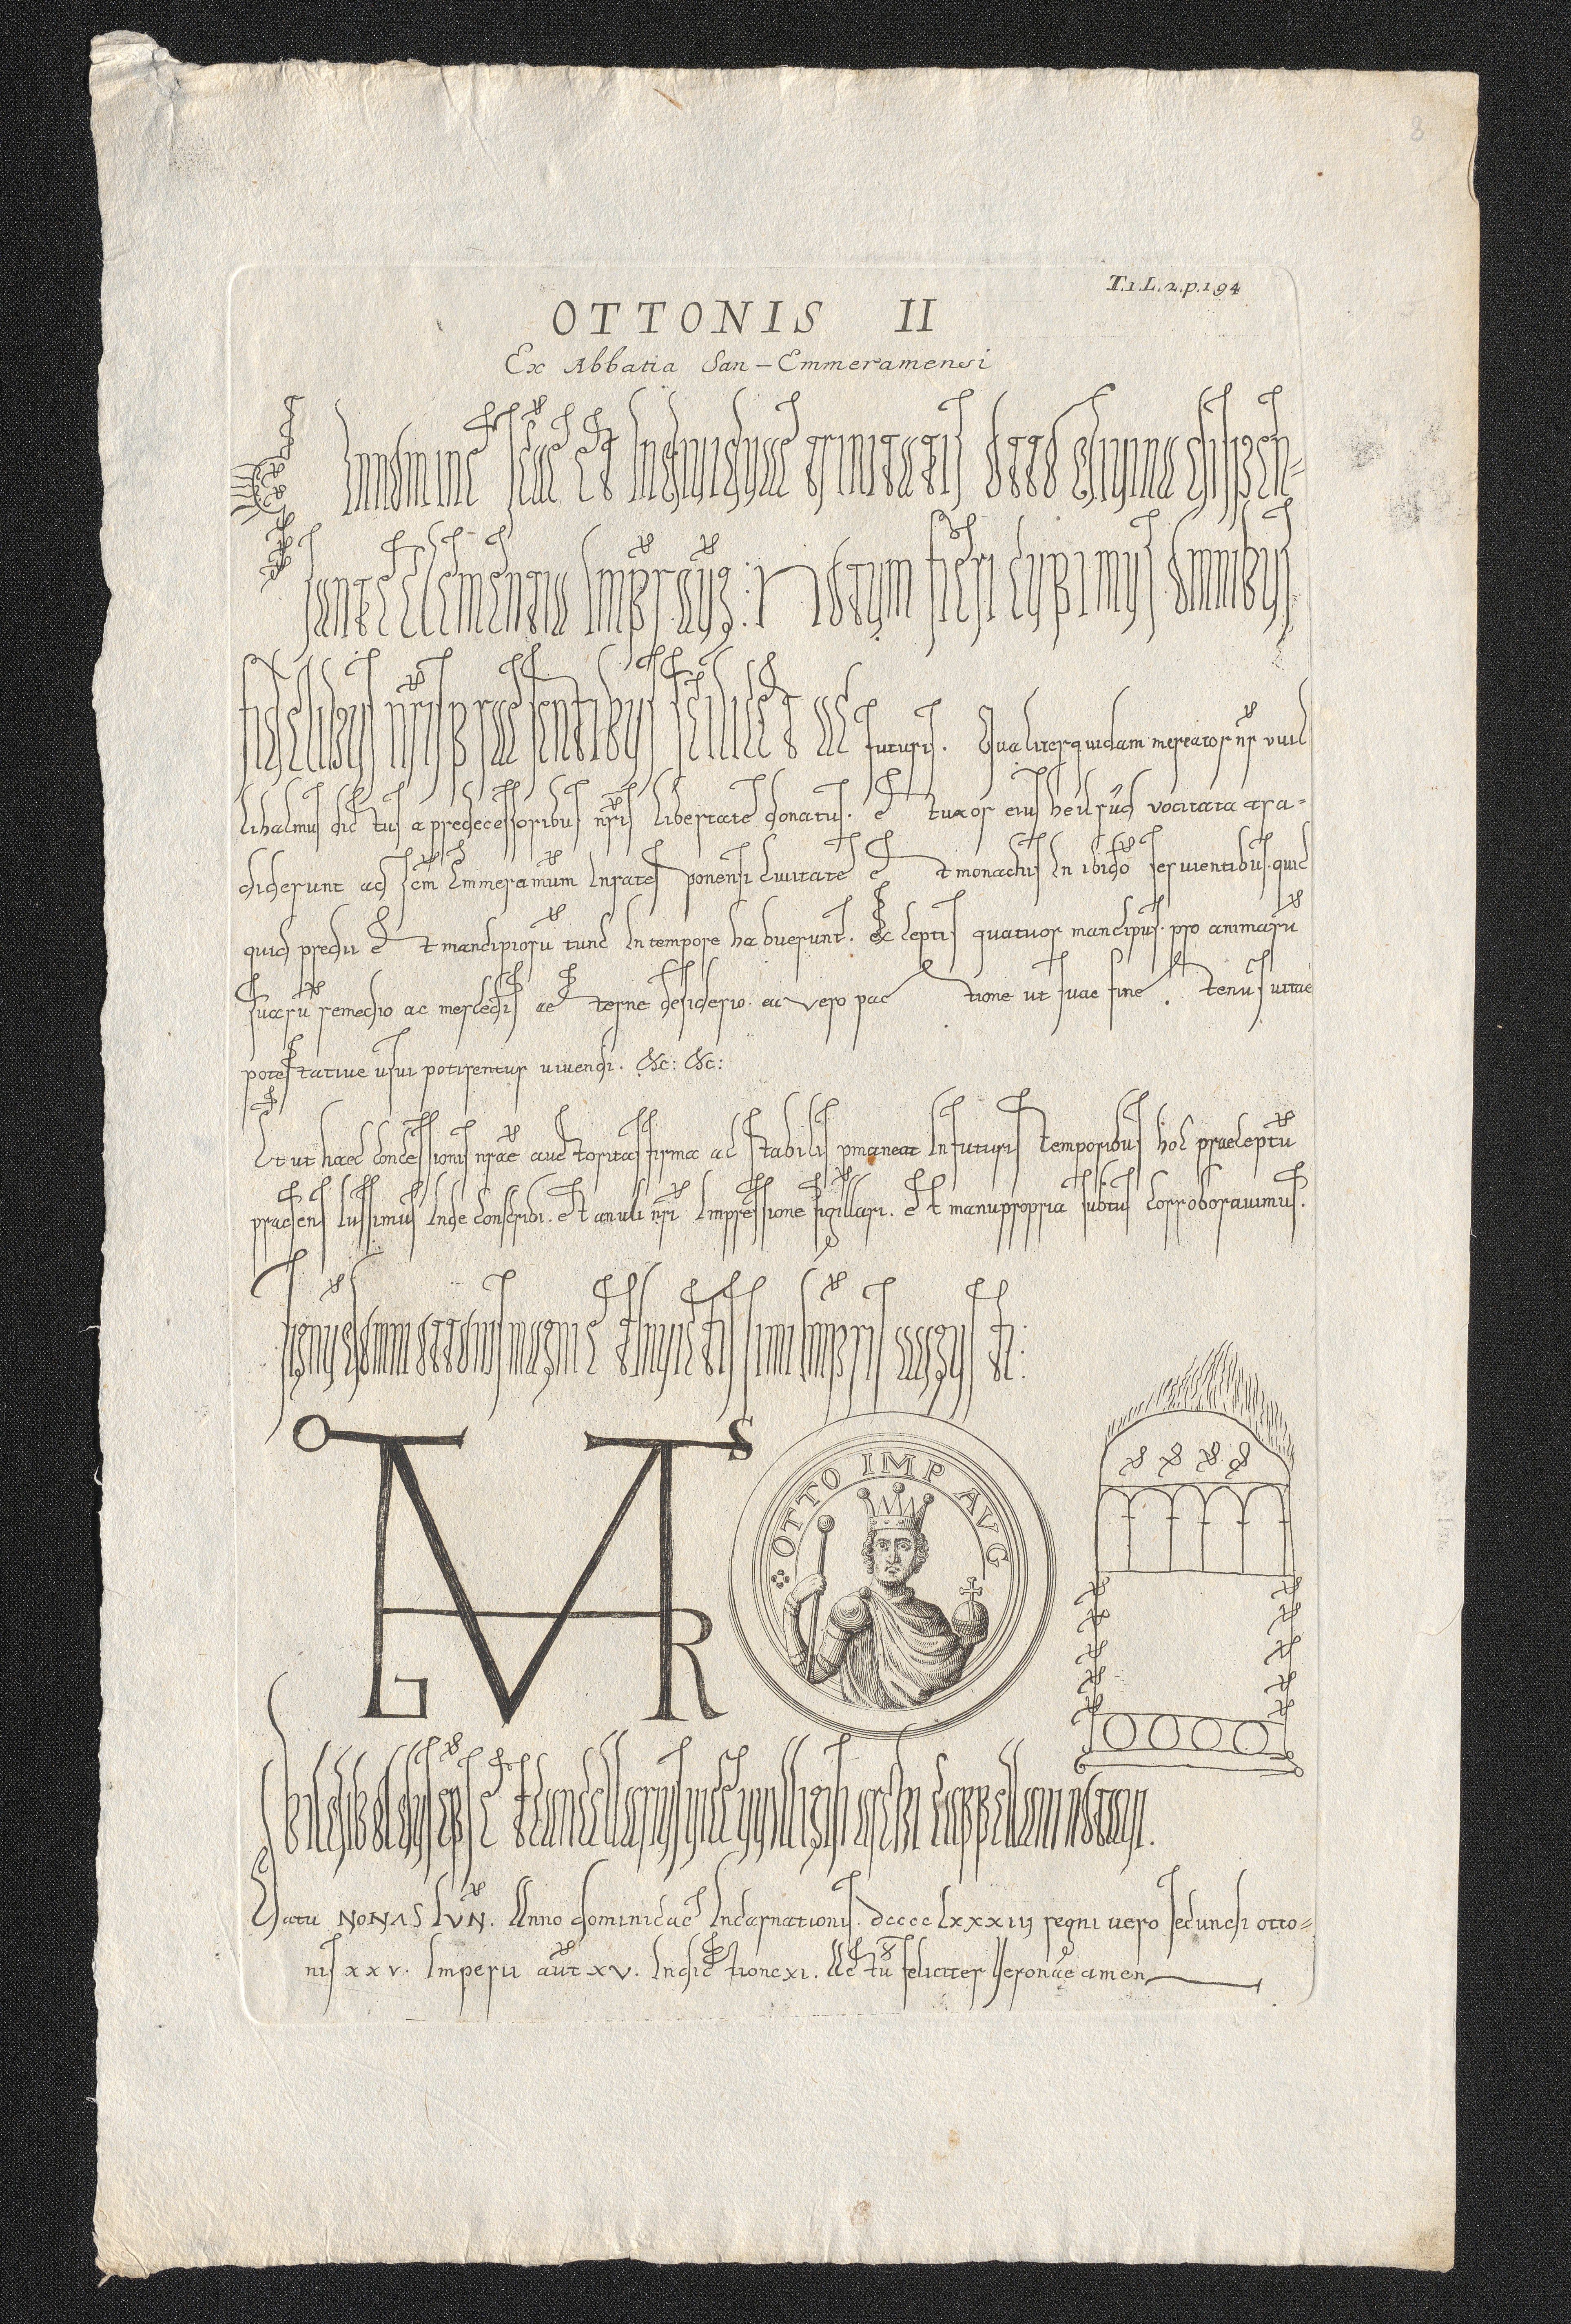 8
T.1.L.2.p.194
OTTONIS II
Ex Abbatia San-Emmeramensi
In nomine scae et individuae trinitatis otto divina dispen-
sante clementia impr aug: Notum fieri cupimus omnibus
fidelibus nris praesentibus scilicet ac futuris. Qualiter quidam mercator nr vuil
lihalmus dictus a predecessoribus nris libertate donatus. et uxor eius heilrad vocitata tra-
diderunt ad scm Emmeramum In ratesponensi civitate et monachis In ibi do servientibus. quic
quid predii et mancipiorum tunc In tempore habuerunt. exceptis quatuor mancipiis. pro animarum
suarum remedio ac mercedis aeterne desiderio. ea vero pactione ut suae fine tenus vitae
potestative usui potirentur vivendi. &c: &c:
Et ut haec concessionis nrae auctoritas firma ac stabilis pmaneat In futuris temporibus hoc praeceptu
praesens Iussimus Inde conscribi. et anuli nri Impressione sigillari. et manu propria subtus corroboravimus.
signu domni ottonis magni et Invictissimi Impris augusti:
O S
OTTO IMP AVG
L R
hildiboldus eps et cancellarius vice vuilligisi archi cappellani notavi.
Datu NONAS IVN. Anno dominicae Incarnationis. dcccclxxxiii regni vero secundi otto-
nis xxv. Imperii aut xv. Indictione xi. Actu feliciter Veronae amen